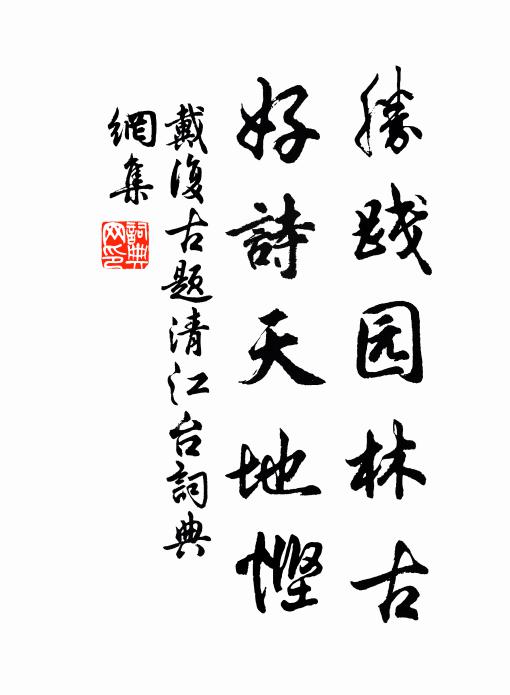 勝践园林古
好詩天地悭
戴復古题清江台詞典
網集
詞典网印